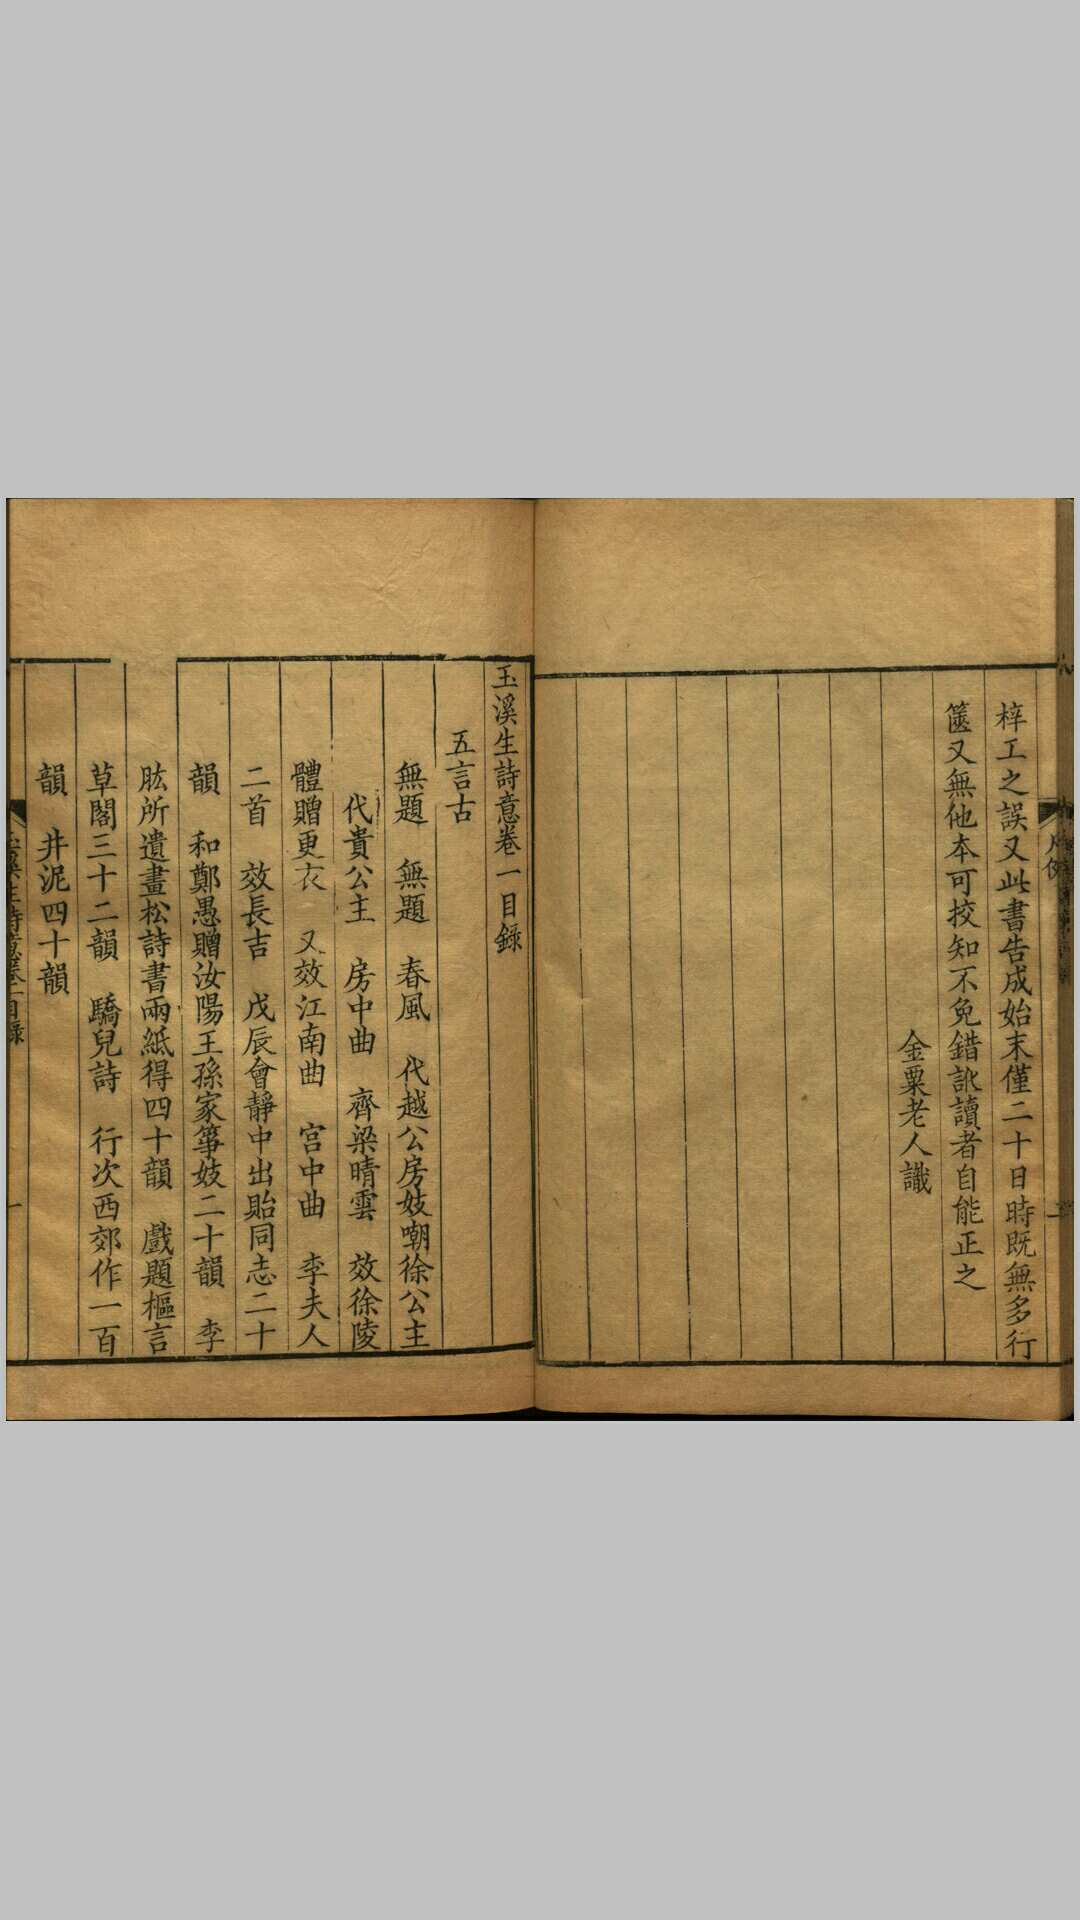 梓工之誤又此書告成始末僅二十日時既無多行
篋又無他本可挍知不免錯訛讀者自能正之
金粟老人識
玉溪生詩意卷一目錄
五言古
無題 無題 春風 代越公房妓嘲徐公主
代貴公主 房中曲 齊梁晴雲 效徐陵
體贈更衣 又效江南曲 宮中曲 李夫人
二首 效長吉 戊辰會靜中出貽同志二十
韻 和鄭愚贈汝陽王孫家箏妓二十韻 李
肱所遺畫松詩書兩紙得四十韻 戲題樞言
草閣三十二韻 驕兒詩 行次西郊作一百
韻 井泥四十韻
玉溪生詩意卷一目錄
一